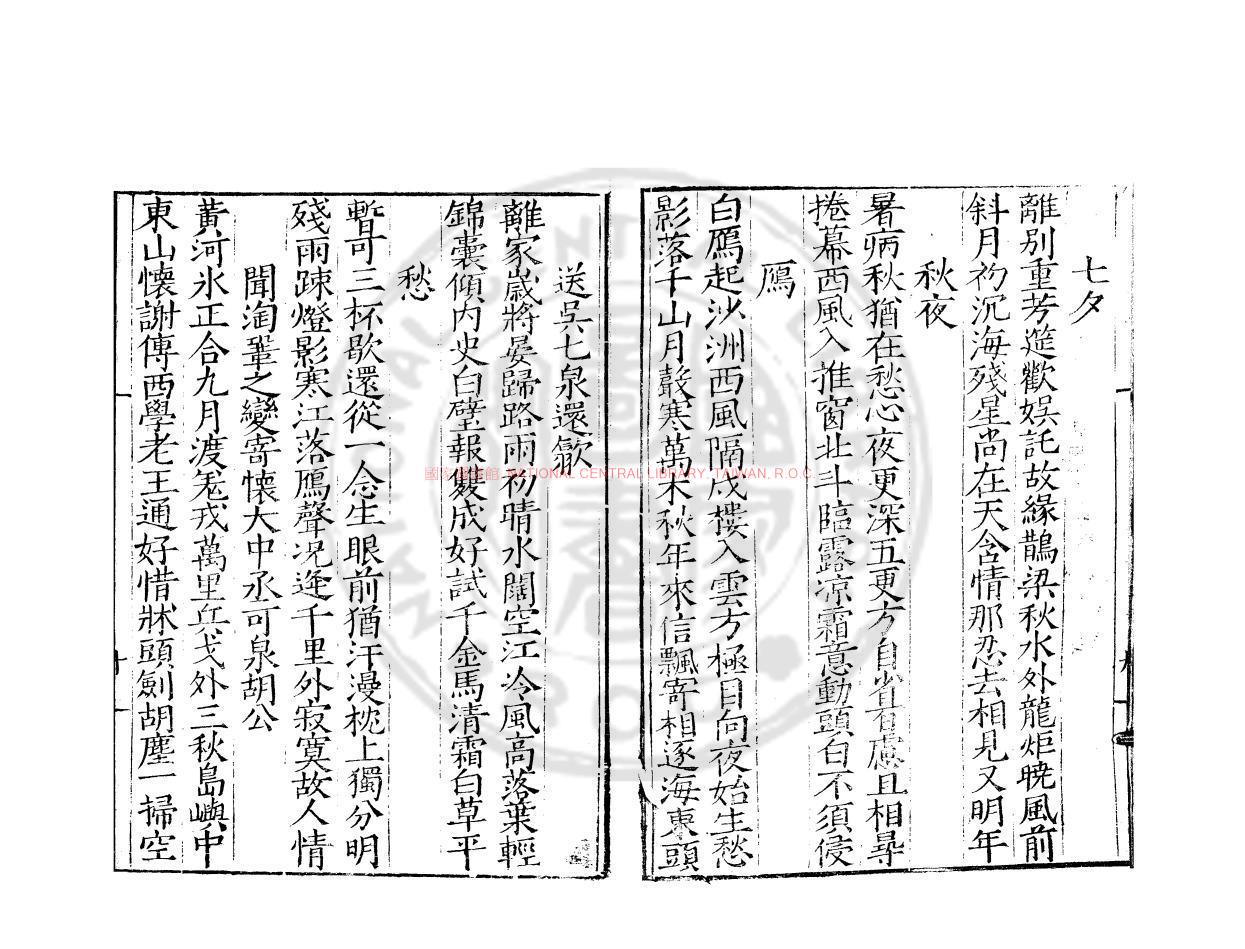 七夕
離別重芳筵歡娛託故緣鵲梁秋水外龍炬曉風前
斜月初沉海殘星尚在天含情那忍去相見又明年
秋夜
暑病秋猶在愁心夜更深五更方自省百慮且相尋
捲幕西風入推窗北斗臨露凉霜意動頭白不須侵
鴈
白鴈起沙洲西風隔戍樓入雲方極目向夜始生愁
影落千山月聲寒萬木秋年來信飄寄相逐海東頭
送吳七泉還歙
離家歲將晏歸路雨初晴水闊空江冷風高落葉輕
錦囊傾內史白璧報雙成好試千金馬清霜白草平
愁
暫哥三杯歇還從一念生眼前猶汗漫枕上獨分明
殘雨踈燈影寒江落鴈聲況逢千里外寂寞故人情
聞淘鞏之變寄懷大中丞可泉胡公
黃河氷正合九月渡䓕戎萬里兵戈外三秋島嶼中
東山懷謝傳西學老王通好惜牀頭劍胡塵一掃空
國家圖書館, NATIONAL CENTRAL LIBRARY, TAIWAN, R.O.C.